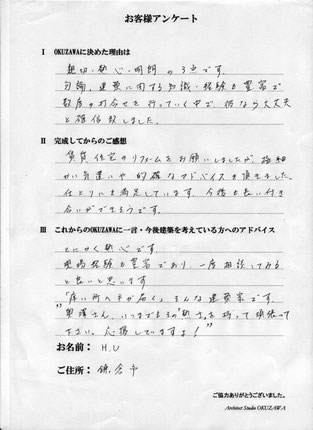 お客様アンケート
I OKUZAWAに決めた理由は
親切・熱心・明朗 の3点です。
勿論、建築に関する知識・経験も豊富で
数度の打合せを行っていく中で 彼なら大丈夫
と確信致しました。
II 完成してからのご感想
賃貸住宅のリフォームをお願いしましたが、極細
かい気遣いや的確なアドバイスを頂きました。
仕上りにも満足しています。今後も良い付き
合いができそうです。
III これからのOKUZAWAに一言・今後建築を考えている方へのアドバイス
とにかく熱心です。
現場経験も豊富であり、一度相談してみる
と良いと思います
"痒い所へ手が届く"そんな建築家です。
奥澤さん、いつまでもその"熱さ"を持って頑張って
下さい。応援していますよ!
お名前: H.U
ご住所: 鎌倉市
ご協力ありがとうございました。
Architect Studio OKUZAWA